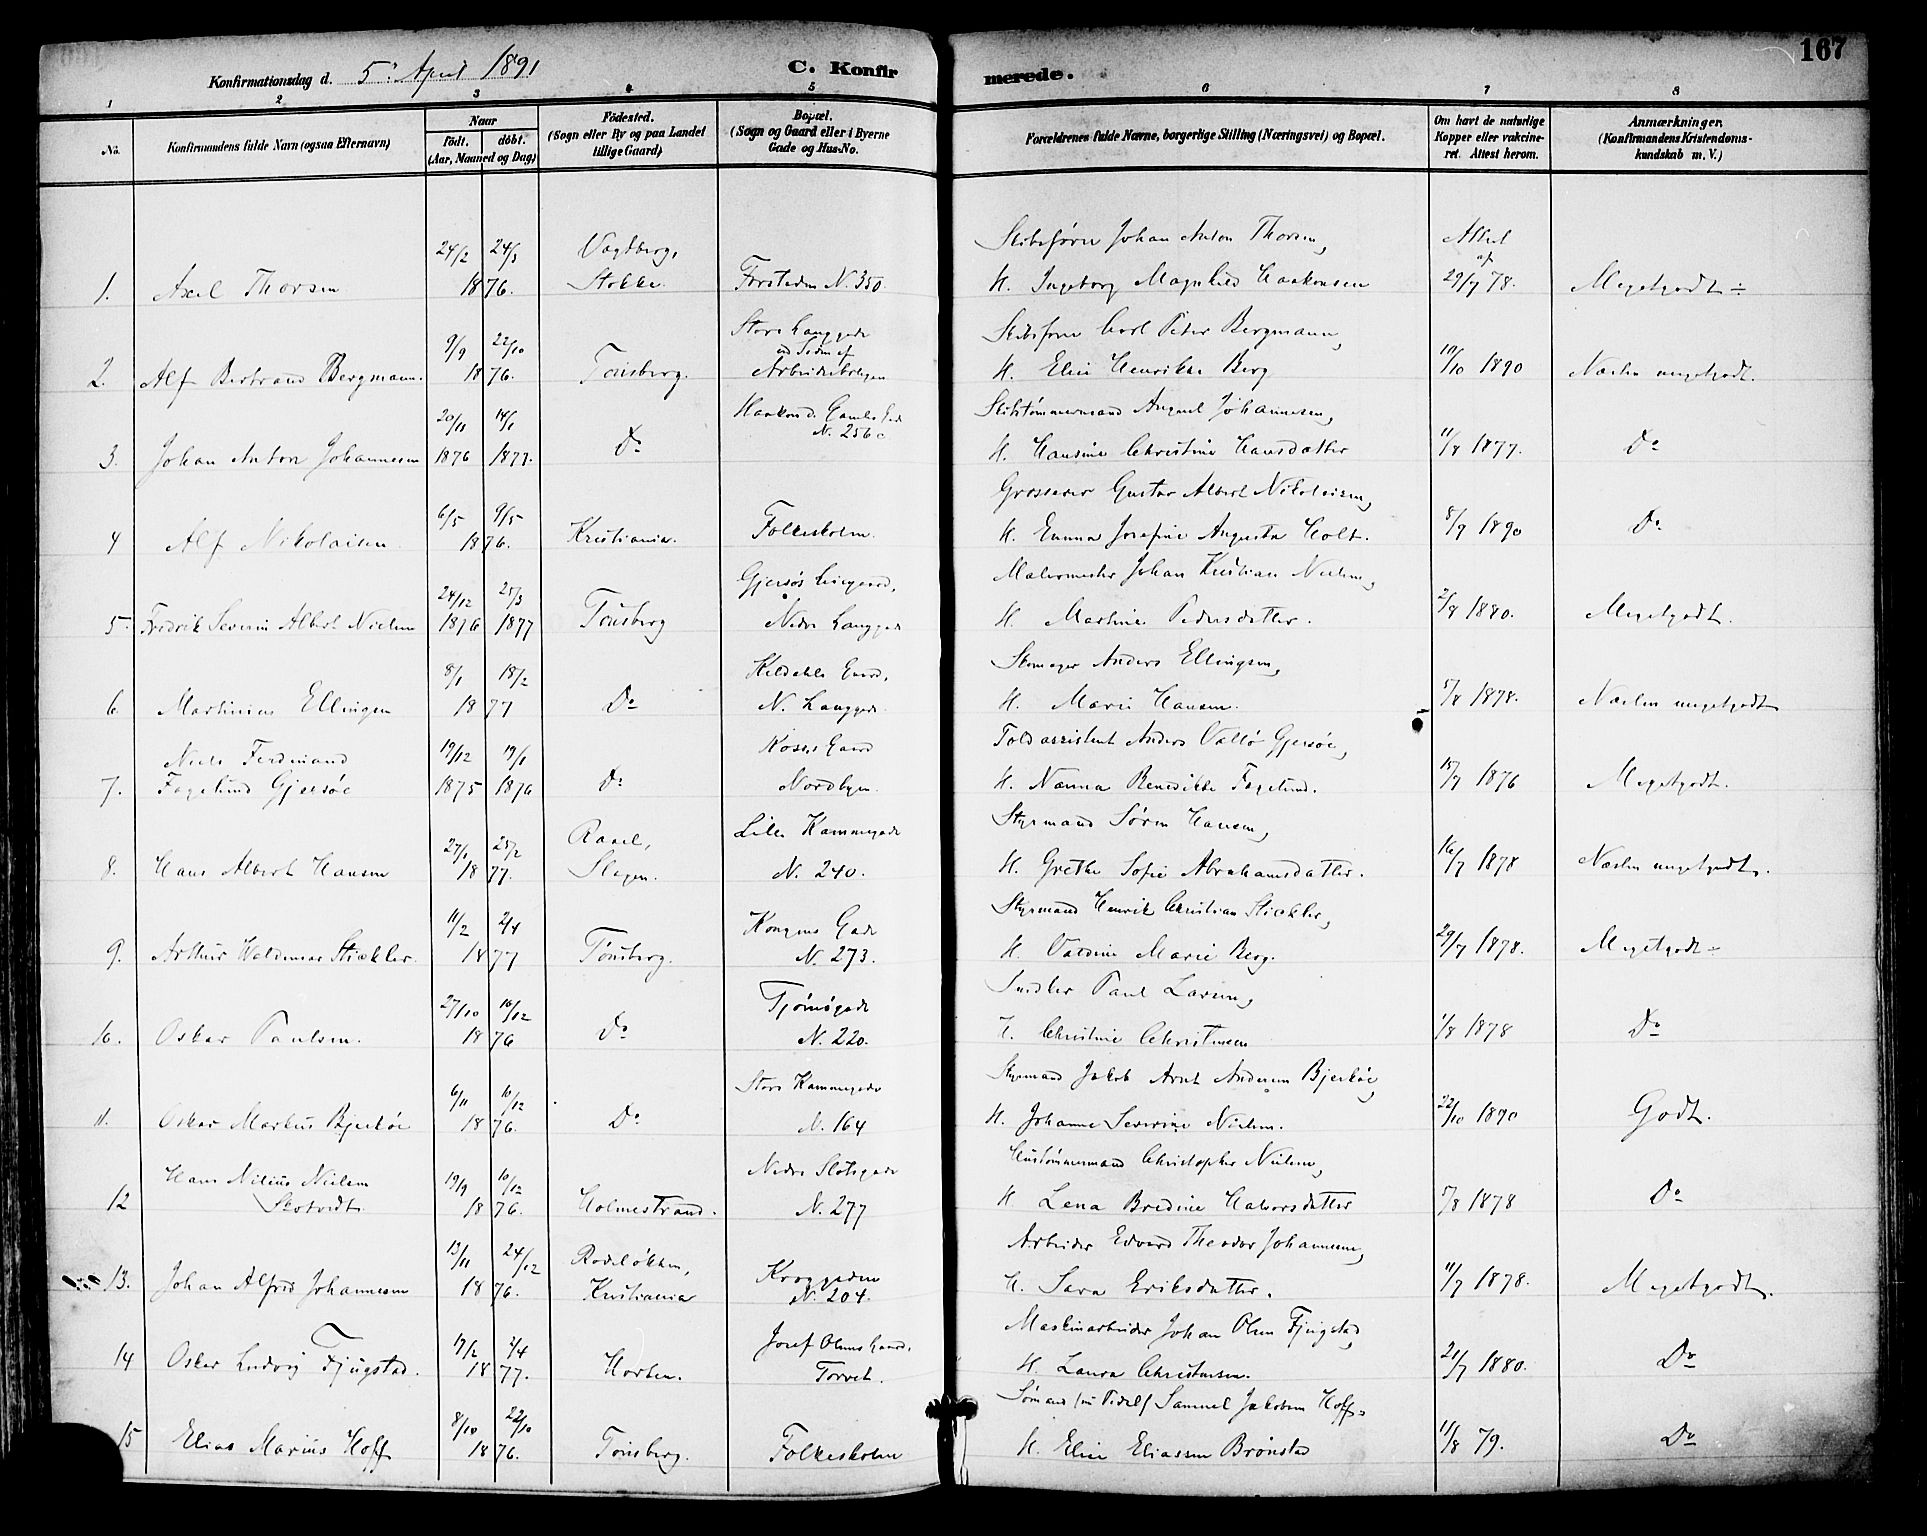 167
Konfirmationsdag d. 5. April 1891
C. Konfirmerede.
1 2 3 4 5 6 7 8
No.
Konfirmandens fulde Navn (ogsaa Efternavn)
Naar
født. døbt.
(Aar, Maaned og Dag)
Fødested.
(Sogn eller By og paa Landet
tillige Gaard)
Bopæl.
(Sogn og Gaard eller i Byerne
Gade og Hus-No.
Forældrenes fulde Navne, borgerlige Stilling (Næringsvei) og Bopæl.
Om havt de naturlige
Kopper eller vakcineret. Attest herom.
Anmærkninger.
(Konfirmandens Kristendomskundskab m. V.)
24/2 24/3 Vagtberg, Skibsfører Johan Anton Thorsen, Attest af
1. Axel Thorsen 1876. Stokke. Forstaden N. 350. H. Ingeborg Magnhild Haakonsen 29/7 78. Megetgodt ÷
9/9 22/10 Store Langgade ved Siden af Skibsfører Carl Peter Bergmann,
2. Alf Bertrand Bergmann. 1876. Tønsberg. Arbeiderboligen H. Elise Henrikke Berg 10/10 1890 Næsten megetgodt.
20/11 14/1 Haakon d. Gamles Gade Skibstømmermand August Johannesen,
3. Johan Anton Johannesen 1876 1877. Do N. 256c H. Hansine Christine Hansdatter 11/8 1877. Do
6/5 9/5 Grosserer Gustav Albert Nikolaisen,
4 Alf Nikolaisen. 1876. Kristiania. Folkeskolen. H. Emma Josefine Augusta Holt. 8/9 1890 Do
24/12 25/3 Gjersøs Leiegaard, Malermester Johan Kristian Nielsen,
5. Fredrik Severin Albert Nielsen 1876 1877 Tønsberg Nedre Langgade H. Martine Pedersdatter. 2/8 1880. Megetgodt.
8/1 18/2 Keldahls Gaard, Skomager Anders Ellingsen,
6. Martinius Ellingsen 1877 Do N. Langgade. H. Marie Hansen. 5/8 1878. Næsten megetgodt
Niels Ferdinand 19/12 19/1 Kosers Gaard Toldassistent Anders Vallø Gjersøe,
7. Fagelund Gjersøe 1875 1876 Do Nordbyen. H. Nanna Benedikte Fagelund. 15/7 1876 Megetgodt.
27/1 25/2 Rasel, Lille Kammegade Styrmand Søren Hansen,
8. Hans Albert Hansen 1877. Slagen. N. 240. H. Grethe Sofie Abrahamsdatter. 16/7 1878 Næsten megetgodt.
11/2 2/4 Kongens Gade Styrmand Henrik Christian Stickler,
9. Arthur Waldemar Stickler. 1877 Tønsberg. N. 273. H. Valdine Marie Berg. 29/7 1878. Megetgodt ÷
27/10 16/12 Tjømøgade Snedker Paul Larsen,
10. Oskar Paulsen. 1876 Do N. 220. H. Christine Christensen 1/8 1878 Do
6/11 10/12 Store Kammegade Styrmand Jakob Arnt Andersen Bjerkøe,
11. Oskar Markus Bjerkøe 1876. Do N. 164 H. Johanne Severine Nielsen. 22/10 1890 Godt.
Hans Nilius Nielsen 19/9 10/12 Nedre Slotsgade Hustømmermand Christopher Nielsen,
12 Skotvedt. 1876. Holmestrand. N. 277 H. Lena Bredine Halvorsdatter 5/8 1878 Do
13/11 24/12 Rodeløkken, Arbeider Edvard Theodor Johannesen,
13. Johan Alfred Johannesen 1876. Kristiania Kroggaden N. 204. H. Sara Eriksdatter. 11/7 1878. Megetgodt.
19/2 2/4 Josef Olsens Gaard, Maskinarbeider Johan Olsen Fjugstad,
14 Oskar Ludvig Fjugstad. 1877. Horten. Torvet. H. Laura Christensen. 21/7 1880. Do
8/10 22/10 Sømand (nu Pedel) Samuel Jakobsen Hoff,
15 Elias Marius Hoff 1876. Tønsberg. Folkeskolen H. Elise Eliassen Brønstad 11/8 79. Do